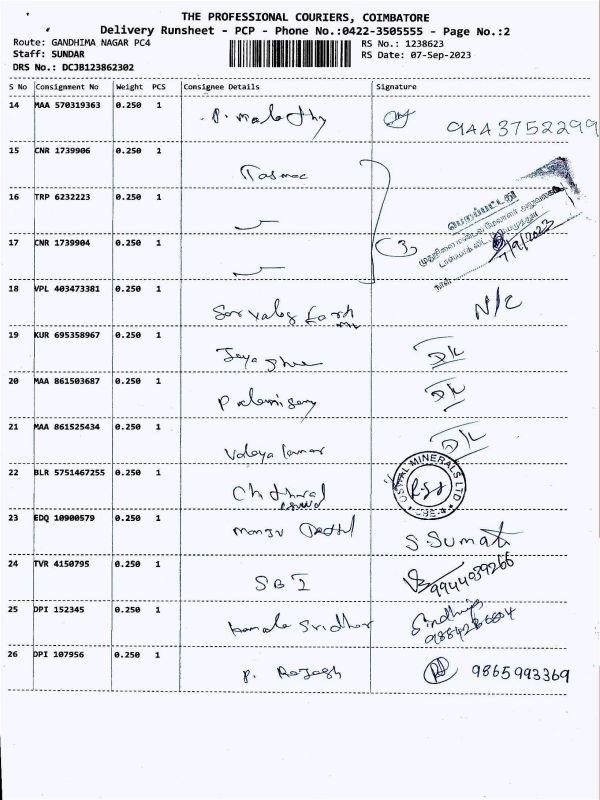 THE PROFESSIONAL COURIERS, COIMBATORE
Delivery Runsheet - PCP - Phone No.:0422-3505555 - Page No.:2
Route: GANDHIMA NAGAR PC4 RS No.: 1238623
Staff: SUNDAR RS Date: 07-Sep-2023
DRS No.: DCJB123862302
S No Consignment No Weight PCS Consignee Details Signature
14 MAA 570319363 0.250 1 P. Malathy 9443752299
15 CNR 1739906 0.250 1 Tasmac
16 TRP 6232223 0.250 1
பெறப்பட்டது
17 CNR 1739904 0.250 1 3 7/9/2023
நாள்
18 VPL 403473381 0.250 1 N/C
19 KUR 695358967 0.250 1 Jaya Shree D/L
20 MAA 861503687 0.250 1 Palanisamy D/L
21 MAA 861525434 0.250 1 D/L
22 BLR 5751467255 0.250 1 USWAL MINERALS LTD CBE-4
23 EDQ 10900579 0.250 1 S. Sumati
24 TVR 4150795 0.250 1 SBI 9944039266
25 DPI 152345 0.250 1 Kamala Sridhar Sindhuja
26 DPI 107956 0.250 1 P. Rajagh 9865993369